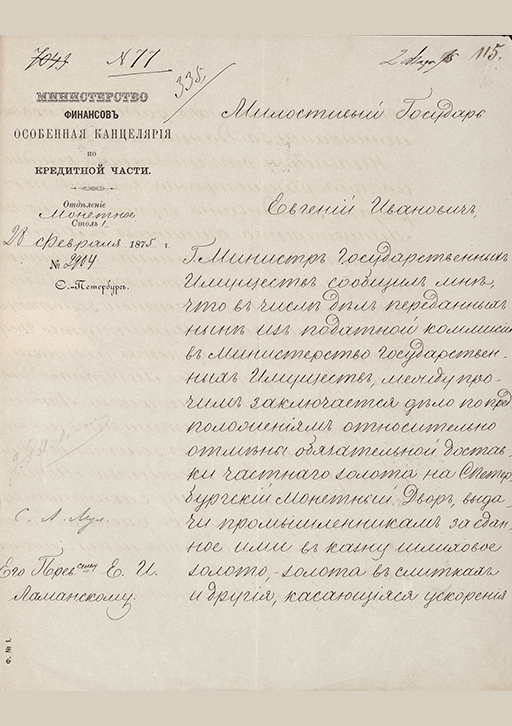 7049 N 77
335
115.
МИНИСТЕРСТВО
ФИНАНСОВЪ
ОСОБЕННАЯ КАНЦЕЛЯРІЯ
ПО
КРЕДИТНОЙ ЧАСТИ.
Отдѣленіе
Монетное
Столъ 1
28 февраля 1875 г.
№ 2904
С.-Петербургъ.
Милостивый Государь
Евгеній Ивановичъ,
Г. Министръ Государственныхъ
Имуществъ сообщилъ мнѣ,
что въ числѣ дѣлъ переданныхъ
нынѣ изъ податной коммисіи
въ Министерство Государствен-
ныхъ Имуществъ, между про-
чимъ заключается дѣло по пред
положеніямъ относительно
отмѣны обязательной достав-
ки частнаго золота на СПетер-
бургскій Монетный Дворъ, выда-
чи промышленникамъ за сдан-
ное ими въ казну шлиховое
золото, - золота въ слиткахъ
и другія, касающіяся ускоренія
Его Прев<sup>ству</sup> Е. И.
Ламанскому.
Ф. № 1.